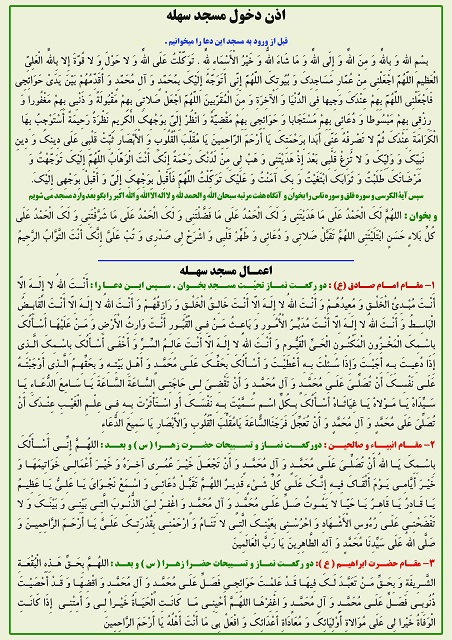 اذن دخول مسجد سهله
قبل از ورود به مسجد این دعا را میخوانیم .
بِسْمِ اللهِ وَ بِاللهِ وَ مِنَ اللهِ وَ إِلَى اللهِ وَ مَا شَاءَ اللهُ وَ خَيْرُ الْأَسْمَاءِ لِلهِ . تَوَكَّلْتُ عَلَى اللهِ وَ لَا حَوْلَ وَ لَا قُوَّةَ إِلا بِاللهِ الْعَلِيِّ
الْعَظِيمِ اللَّهُمَّ اجْعَلْنِي مِنْ عُمَّارِ مَسَاجِدِكَ وَ بُيُوتِكَ اللَّهُمَّ إِنِّي أَتَوَجَّهُ إِلَيْكَ بِمُحَمَّدٍ وَ آلِ مُحَمَّدٍ وَ أُقَدِّمُهُمْ بَيْنَ يَدَيْ حَوَائِجِي
فَاجْعَلْنِي اللَّهُمَّ بِهِمْ عِنْدَكَ وَجِيها فِي الدُّنْيَا وَ الْآخِرَةِ وَ مِنَ الْمُقَرَّبِينَ اللَّهُمَّ اجْعَلْ صَلاتِي بِهِمْ مَقْبُولَةً وَ ذَنْبِي بِهِمْ مَغْفُورا وَ
رِزْقِي بِهِمْ مَبْسُوطا وَ دُعَائِي بِهِمْ مُسْتَجَابا وَ حَوَائِجِي بِهِمْ مَقْضِيَّةً وَ انْظُرْ إِلَيَّ بِوَجْهِكَ الْكَرِيمِ نَظْرَةً رَحِيمَةً أَسْتَوْجِبُ بِهَا
الْكَرَامَةَ عِنْدَكَ ثُمَّ لا تَصْرِفْهُ عَنِّي أَبَدا بِرَحْمَتِكَ يَا أَرْحَمَ الرَّاحِمِينَ يَا مُقَلِّبَ الْقُلُوبِ وَ الْأَبْصَارِ ثَبِّتْ قَلْبِي عَلَى دِينِكَ وَ دِينِ
نَبِيِّكَ وَ وَلِيِّكَ وَ لا تُزِغْ قَلْبِي بَعْدَ إِذْ هَدَيْتَنِي وَ هَبْ لِي مِنْ لَدُنْكَ رَحْمَةً إِنَّكَ أَنْتَ الْوَهَّابُ اللَّهُمَّ إِلَيْكَ تَوَجَّهْتُ وَ
مَرْضَاتَكَ طَلَبْتُ وَ ثَوَابَكَ ابْتَغَيْتُ وَ بِكَ آمَنْتُ وَ عَلَيْكَ تَوَكَّلْتُ اللَّهُمَّ فَأَقْبِلْ بِوَجْهِكَ إِلَيَّ وَ أَقْبِلْ بِوَجْهِي إِلَيْكَ.
سپس آیة الکرسی و سوره فلق و سوره ناس را بخوان و آنگاه هفت مرتبه سبحان الله والحمد لله و لا اله الا الله والله اکبر را بگو بعد وارد مسجد می شویم
و بخوان : اللَّهُمَّ لَكَ الْحَمْدُ عَلَى مَا هَدَيْتَنِي وَ لَكَ الْحَمْدُ عَلَى مَا فَضَّلْتَنِي وَ لَكَ الْحَمْدُ عَلَى مَا شَرَّفْتَنِي وَ لَكَ الْحَمْدُ عَلَى
كُلِّ بَلَاءٍ حَسَنٍ ابْتَلَيْتَنِي اللَّهُمَّ تَقَبَّلْ صَلَاتِي وَ دُعَائِي وَ طَهِّرْ قَلْبِي وَ اشْرَحْ لِي صَدْرِي وَ تُبْ عَلَيَّ إِنَّكَ أَنْتَ التَّوَّابُ الرَّحِيمُ
اعمال مسجد سهله
۱- مقام امام صادق (ع) : دو رکعت نماز تحیّت مسجد بخوان . سپس این دعا را : أَنْتَ اللهُ لا إِلَهَ إِلّا
أَنْتَ مُبْدِئُ الْخَلْقِ وَ مُعِيدُهُمْ وَ أَنْتَ اللهُ لا إِلَهَ إِلّا أَنْتَ خَالِقُ الْخَلْقِ وَ رَازِقُهُمْ وَ أَنْتَ اللهُ لا إِلَهَ إِلّا أَنْتَ الْقَابِضُ
الْبَاسِطُ وَ أَنْتَ اللهُ لا إِلَهَ إِلّا أَنْتَ مُدَبِّرُ الْأُمُورِ وَ بَاعِثُ مَنْ فِي الْقُبُورِ أَنْتَ وَارِثُ الْأَرْضِ وَ مَنْ عَلَيْهَا أَسْأَلُكَ
بِاسْمِكَ الْمَخْزُونِ الْمَكْنُونِ الْحَيِّ الْقَيُّومِ وَ أَنْتَ اللهُ لا إِلَهَ إِلّا أَنْتَ عَالِمُ السِّرِّ وَ أَخْفَى أَسْأَلُكَ بِاسْمِكَ الَّذِي
إِذَا دُعِيتَ بِهِ أَجَبْتَ وَإِذَا سُئِلْتَ بِهِ أَعْطَيْتَ وَ أَسْأَلُكَ بِحَقِّكَ عَلَى مُحَمَّدٍ وَ أَهْلِ بَيْتِهِ وَ بِحَقِّهِمُ الَّذِي أَوْجَبْتَهُ
عَلَى نَفْسِكَ أَنْ تُصَلِّيَ عَلَى مُحَمَّدٍ وَ آلِ مُحَمَّدٍ وَ أَنْ تَقْضِيَ لِي حَاجَتِي السَّاعَةَ السَّاعَةَ يَا سَامِعَ الدُّعَاءِ يَا
سَيِّدَاهُ يَا مَوْلاهُ يَا غِيَاثَاهُ أَسْأَلُكَ بِكُلِّ اسْمٍ سَمَّيْتَ بِهِ نَفْسَكَ أَوِ اسْتَأْثَرْتَ بِهِ فِي عِلْمِ الْغَيْبِ عِنْدَكَ أَنْ
تُصَلِّيَ عَلَى مُحَمَّدٍ وَ آلِ مُحَمَّدٍ وَ أَنْ تُعَجِّلَ فَرَجَنَاالسَّاعَةَ يَامُقَلِّبَ الْقُلُوبِ وَالْأَبْصَارِ يَا سَمِيعَ الدُّعَاءِ
۲- مقام انبیاء و صالحین : دورکعت نماز و تسبیحات حضرت زهرا (س) و بعد : اللهُمَّ إِنِّي أَسْأَلُكَ
بِاسْمِكَ يَا اللهُ أَنْ تُصَلِّيَ عَلَى مُحَمَّدٍ وَ آلِ مُحَمَّدٍ وَ أَنْ تَجْعَلَ خَيْرَ عُمْرِي آخِرَهُ وَ خَيْرَ أَعْمَالِي خَوَاتِيمَهَا وَ
خَيْرَ أَيَّامِي يَوْمَ أَلْقَاكَ فِيهِ إِنَّكَ عَلَى كُلِّ شَيْءٍ قَدِيرٌ اللهُمَّ تَقَبَّلْ دُعَائِي وَ اسْمَعْ نَجْوَايَ يَا عَلِيُّ يَا عَظِيمُ
يَا قَادِرُ يَا قَاهِرُ يَا حَيًّا لا يَمُوتُ صَلِّ عَلَى مُحَمَّدٍ وَ آلِ مُحَمَّدٍ وَ اغْفِرْ لِيَ الذُّنُوبَ الَّتِي بَيْنِي وَ بَيْنَكَ وَ لا
تَفْضَحْنِي عَلَى رُءُوسِ الْأَشْهَادِ وَ احْرُسْنِي بِعَيْنِكَ الَّتِي لا تَنَامُ وَ ارْحَمْنِي بِقُدْرَتِكَ عَلَيَّ يَا أَرْحَمَ الرَّاحِمِينَ وَ
صَلَّى اللهُ عَلَى سَيِّدِنَا مُحَمَّدٍ وَ آلِهِ الطَّاهِرِينَ يَا رَبَّ الْعَالَمِينَ
۳- مقام حضرت ابراهیم (ع): دو رکعت نماز و تسبیحات حضرا زهرا (س) و بعد : اللهُمَّ بِحَقِّ هَذِهِ الْبُقْعَةِ
الشَّرِيفَةِ وَ بِحَقِّ مَنْ تَعَبَّدَ لَكَ فِيهَا قَدْ عَلِمْتَ حَوَائِجِي فَصَلِّ عَلَى مُحَمَّدٍ وَ آلِ مُحَمَّدٍ وَ اقْضِهَا وَ قَدْ أَحْصَيْتَ
ذُنُوبِي فَصَلِّ عَلَى مُحَمَّدٍ وَ آلِ مُحَمَّدٍ وَ اغْفِرْهَا اللهُمَّ أَحْيِنِي مَا كَانَتِ الْحَيَاةُ خَيْرا لِي وَ أَمِتْنِي إِذَا كَانَتِ
الْوَفَاةُ خَيْرا لِي عَلَى مُوَالاةِ أَوْلِيَائِكَ وَ مُعَادَاةِ أَعْدَائِكَ وَ افْعَلْ بِي مَا أَنْتَ أَهْلُهُ يَا أَرْحَمَ الرَّاحِمِينَ